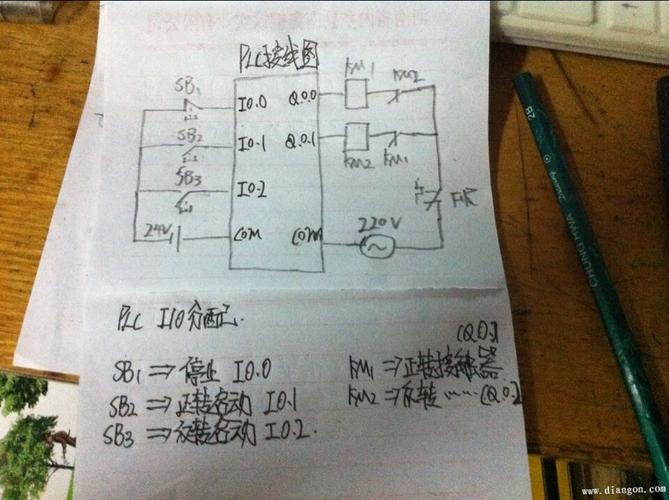 PLC接线图
SB1 I0.0 Q0.0 KM1 KM2
SB2 I0.1 Q0.1 KM2 KM1
SB3 I0.2 FR
24V COM COM 220V
PLC I/O分配
SB1⇒停止 I0.0
SB2⇒正转启动 I0.1
SB3⇒反转启动 I0.2.
KM1⇒正转接触器
KM2⇒反转……
2B
CHUNG HWA
www.diangon.com